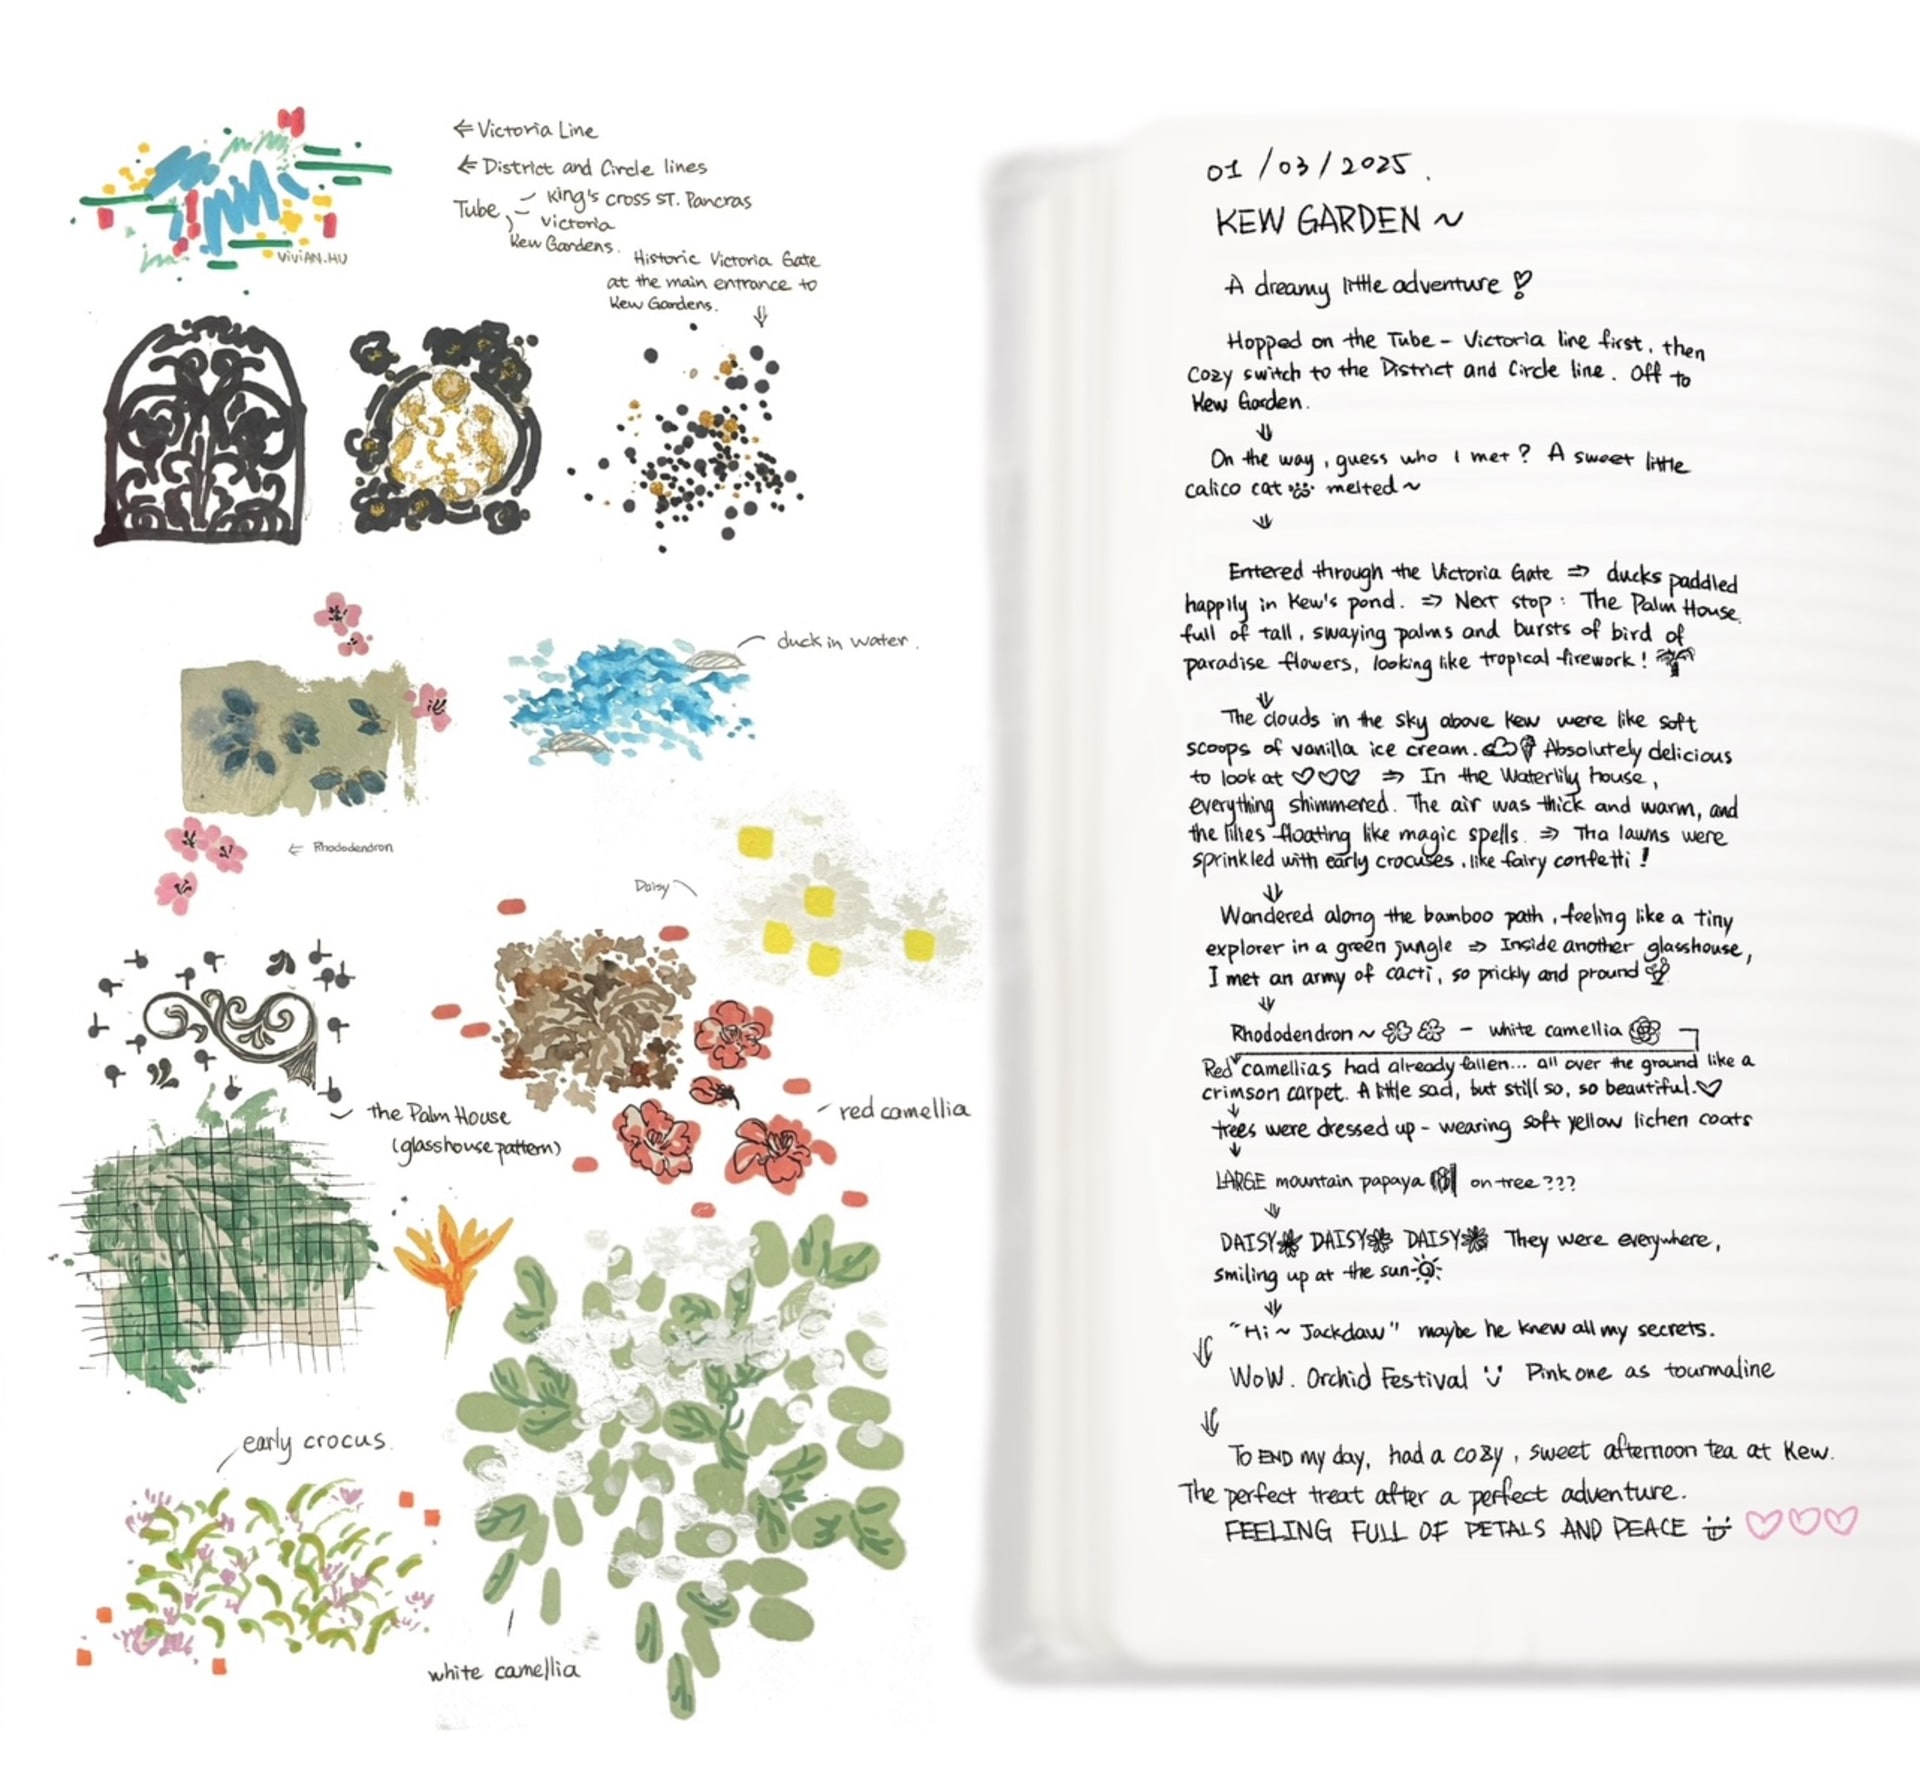 ← Victoria Line
← District and Circle lines
Tube, – King's cross ST. Pancras
– Victoria
Kew Gardens.
ViViAN.HU
Historic Victoria Gate
at the main entrance to
Kew Gardens.
duck in water.
← Rhododendron
Daisy
the Palm House
(glasshouse pattern)
red camellia
early crocus.
white camellia
01/03/2025.
KEW GARDEN ~
A dreamy little adventure!
Hopped on the Tube - Victoria line first, then
cozy switch to the District and Circle line. Off to
Kew Garden.
On the way, guess who I met? A sweet little
calico cat melted~
Entered through the Victoria Gate ⇒ ducks paddled
happily in Kew's pond. ⇒ Next stop: The Palm House
full of tall, swaying palms and bursts of bird of
paradise flowers, looking like tropical firework!
The clouds in the sky above Kew were like soft
scoops of vanilla ice cream. Absolutely delicious
to look at ♡♡♡ ⇒ In the Waterlily house,
everything shimmered. The air was thick and warm, and
the lilies floating like magic spells. ⇒ Tha lawns were
sprinkled with early crocuses, like fairy confetti!
Wandered along the bamboo path, feeling like a tiny
explorer in a green jungle ⇒ Inside another glasshouse,
I met an army of cacti, so prickly and pround
Rhododendron ~ - white camellia
Red camellias had already fallen... all over the ground like a
crimson carpet. A little sad, but still so, so beautiful.♡
trees were dressed up - wearing soft yellow lichen coats
LARGE mountain papaya on tree???
DAISY DAISY DAISY They were everywhere,
smiling up at the sun
"Hi ~ Jackdaw" maybe he knew all my secrets.
WoW. Orchid Festival Pink one as tourmaline
To END my day, had a cozy, sweet afternoon tea at Kew.
The perfect treat after a perfect adventure.
FEELING FULL OF PETALS AND PEACE ♡♡♡